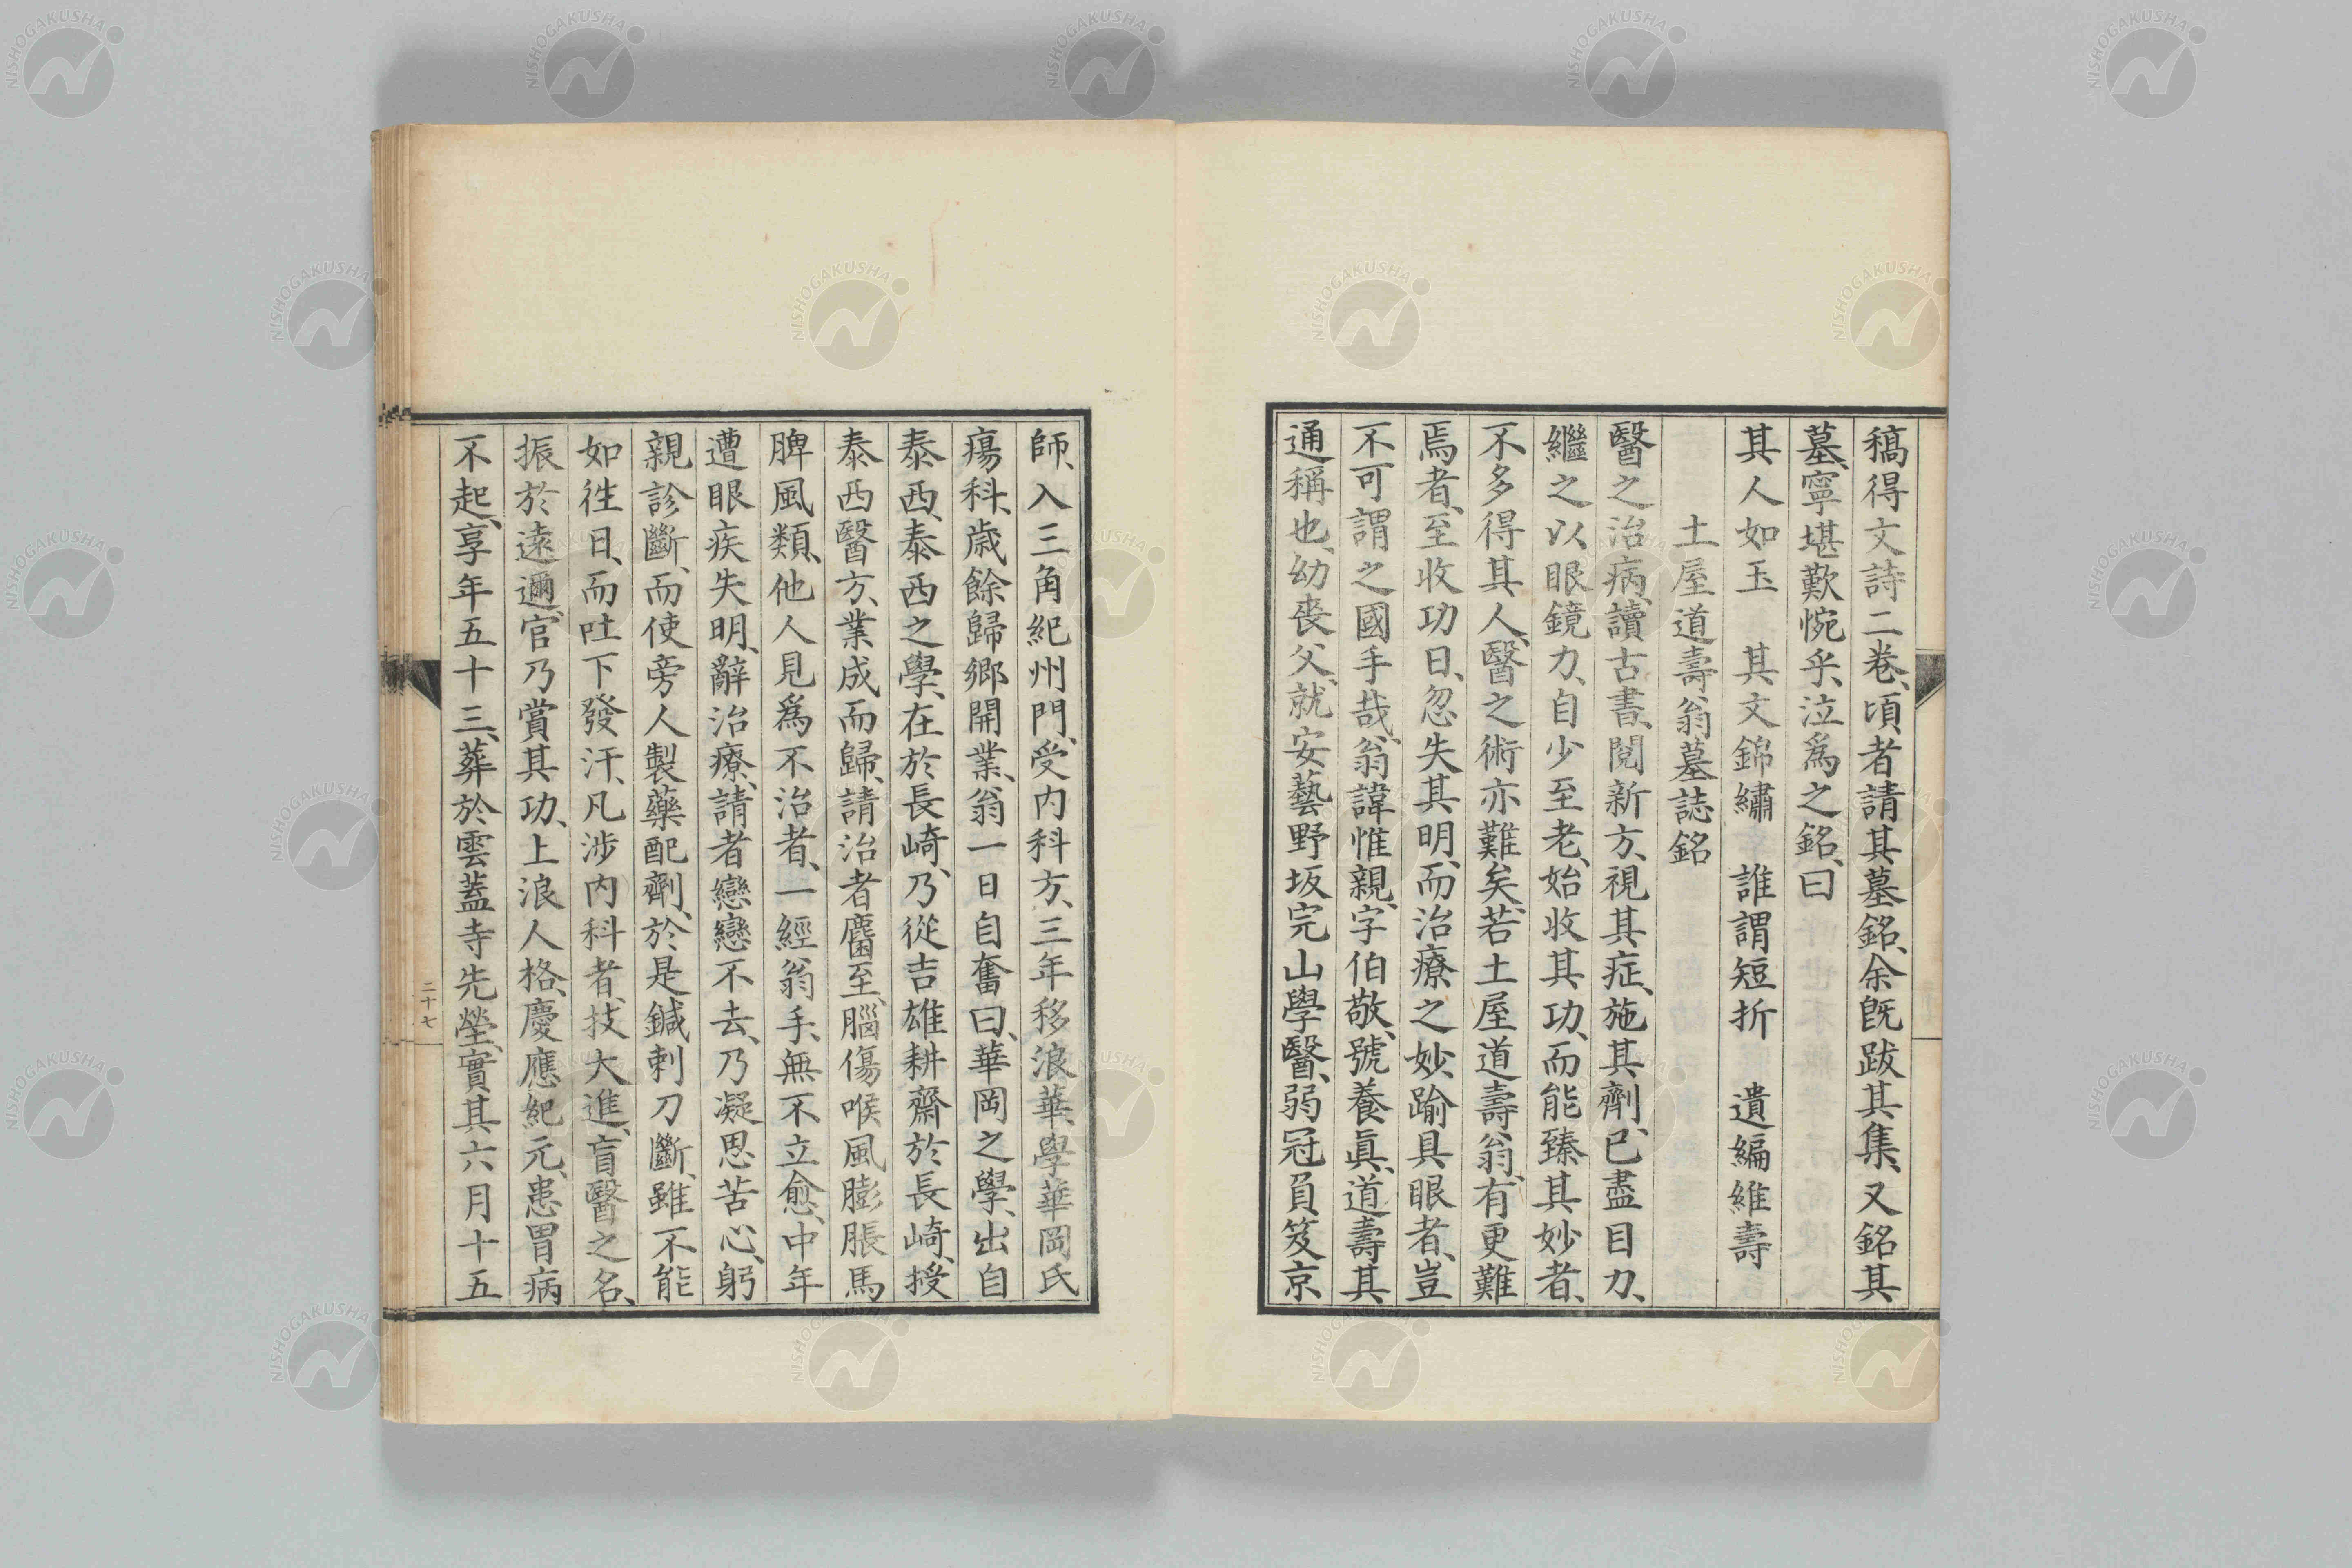 稿得文詩二卷、頃者請其墓銘、余既跋其集、又銘其
墓、寧堪歎惋乎、泣爲之銘、曰
其人如玉　其文錦繡　誰謂短折　遺編維壽
土屋道壽翁墓誌銘
醫之治病、讀古書、閱新方、視其症、施其劑、已盡目力、
繼之以眼鏡力、自少至老、始收其功、而能臻其妙者、
不多得其人、醫之術亦難矣、若土屋道壽翁、有更難
焉者、至收功日、忽失其明、而治療之妙、踰具眼者、豈
不可謂之國手哉、翁諱惟親、字伯敬、號養眞、道壽其
通稱也、幼喪父、就安藝野坂完山學醫、弱冠負笈京
師、入三角紀州門、受内科方、三年移浪華、學華岡氏
瘍科、歲餘歸鄉開業、翁一日自奮曰、華岡之學、出自
泰西、泰西之學、在於長崎、乃從吉雄耕齋於長崎、授
泰西醫方、業成而歸、請治者麕至、腦傷喉風膨脹馬
脾風類、他人見爲不治者、一經翁手、無不立愈、中年
遭眼疾失明、辭治療、請者戀戀不去、乃凝思苦心、躬
親診斷、而使旁人製藥配劑、於是鍼刺刀斷、雖不能
如徃日、而吐下發汗、凡涉内科者、技大進、盲醫之名、
振於遠邇、官乃賞其功、上浪人格、慶應紀元、患胃病
不起、享年五十三、葬於雲蓋寺先塋、實其六月十五
二十七
NISHOGAKUSHA